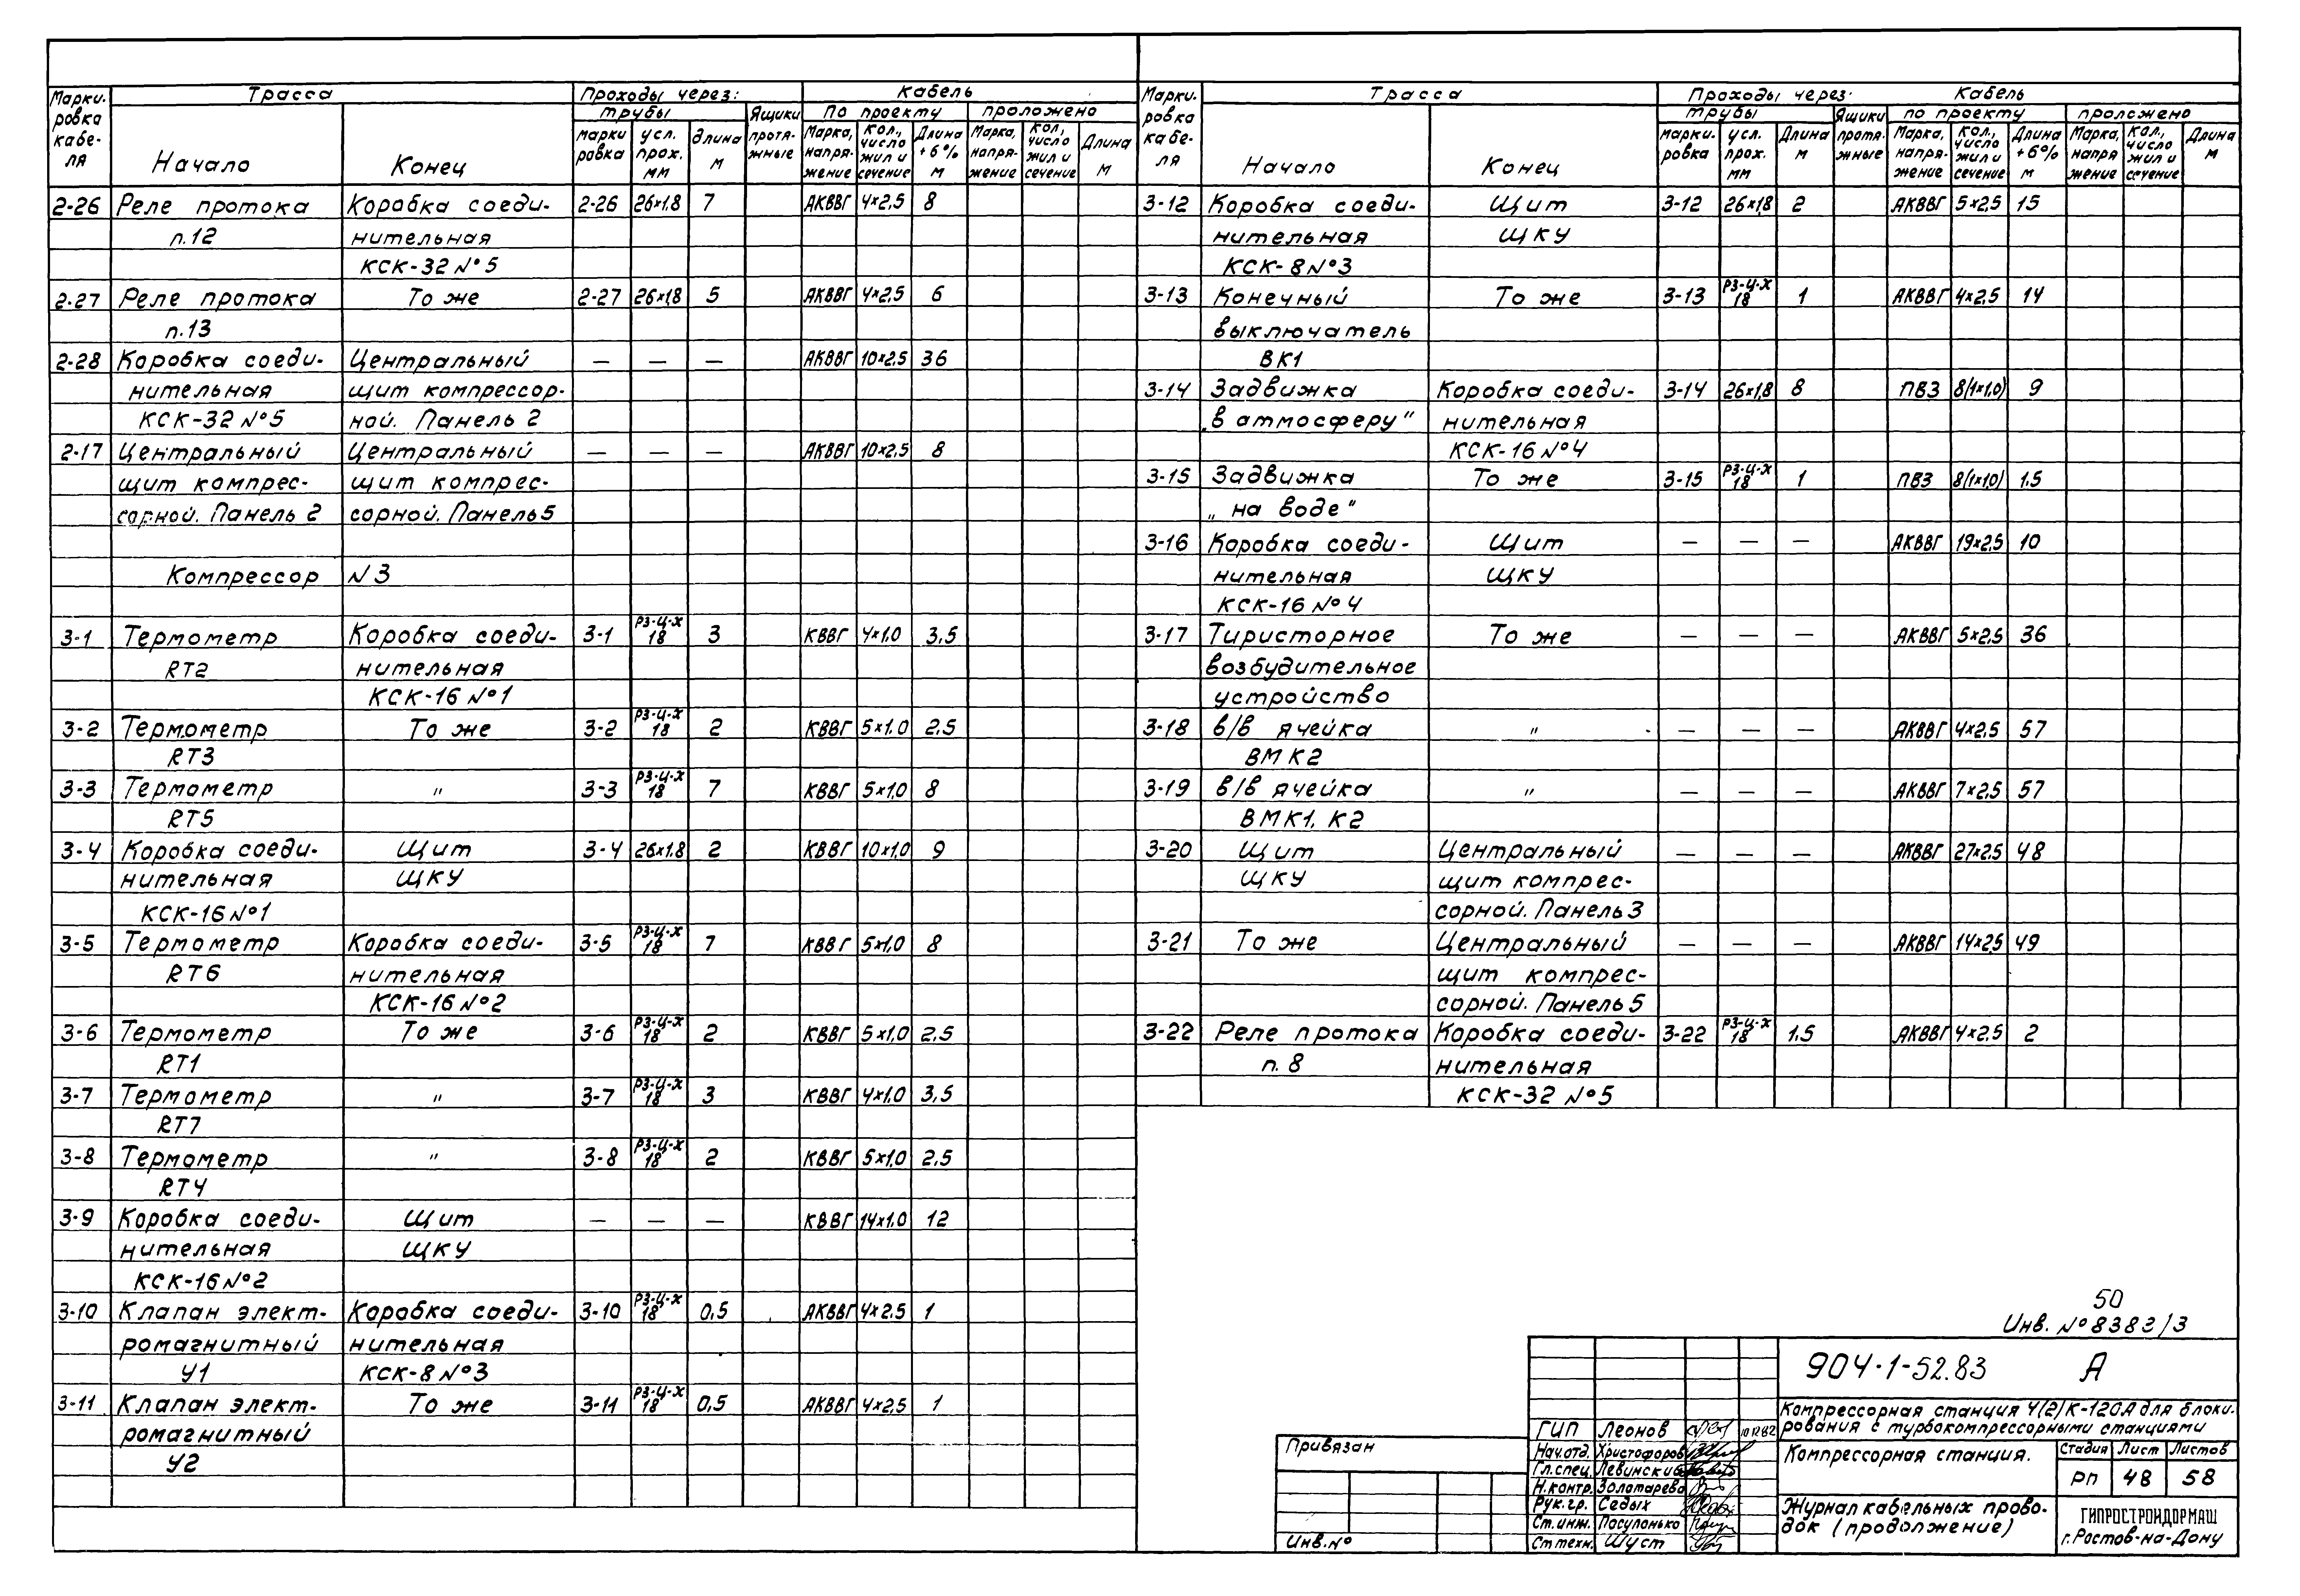 Марки- Трасса Проходы через: Кабель
ровка трубы Ящики По проекту проложено
кабе- марки усл. Длина протя- Марка, кол., Длина Марка, кол., Длина
ля Начало Конец ровка прох. м жные напря- число +6% напря- число м
мм жение жил и м жение жил и
сечение сечение
2-26 Реле протока Коробка соеди- 2-26 26×1,8 7 АКВВГ 4×2,5 8
п.12 нительная
КСК-32 №5
2-27 Реле протока То же 2-27 26×1,8 5 АКВВГ 4×2,5 6
п.13
2-28 Коробка соеди- Центральный — — — АКВВГ 10×2,5 36
нительная щит компрессор-
КСК-32 №5 ной. Панель 2
2-17 Центральный Центральный — — — АКВВГ 10×2,5 8
щит компрес- щит компрес-
сорной. Панель 2 сорной. Панель 5
Компрессор N3
3-1 Термометр Коробка соеди- 3-1 РЗ-Ц-Х 18 3 КВВГ 4×1,0 3,5
RT2 нительная
КСК-16 №1
3-2 Термометр То же 3-2 РЗ-Ц-Х 18 2 КВВГ 5×1,0 2,5
RT3
3-3 Термометр " 3-3 РЗ-Ц-Х 18 7 КВВГ 5×1,0 8
RT5
3-4 Коробка соеди- Щит 3-4 26×1,8 2 КВВГ 10×1,0 9
нительная ЩКУ
КСК-16 №1
3-5 Термометр Коробка соеди- 3-5 РЗ-Ц-Х 18 7 КВВГ 5×1,0 8
RT6 нительная
КСК-16 №2
3-6 Термометр То же 3-6 РЗ-Ц-Х 18 2 КВВГ 5×1,0 2,5
RT1
3-7 Термометр " 3-7 РЗ-Ц-Х 18 3 КВВГ 4×1,0 3,5
RT7
3-8 Термометр " 3-8 РЗ-Ц-Х 18 2 КВВГ 5×1,0 2,5
RT4
3-9 Коробка соеди- Щит — — — КВВГ 14×1,0 12
нительная ЩКУ
КСК-16 №2
3-10 Клапан элект- Коробка соеди- 3-10 РЗ-Ц-Х 18 0,5 АКВВГ 4×2,5 1
ромагнитный нительная
У1 КСК-8 №3
3-11 Клапан элект- То же 3-11 РЗ-Ц-Х 18 0,5 АКВВГ 4×2,5 1
ромагнитный
У2
Марки- Трасса Проходы через: Кабель
ровка трубы Ящики по проекту проложено
кабе- марки- усл. Длина протя- Марка, кол., Длина Марка, кол., Длина
ля Начало Конец ровка прох. м жные напря- число +6% напря число м
мм жение жил и м жение жил и
сечение сечение
3-12 Коробка соеди- Щит 3-12 26×1,8 2 АКВВГ 5×2,5 15
нительная ЩКУ
КСК-8 №3
3-13 Конечный То же 3-13 РЗ-Ц-Х 18 1 АКВВГ 4×2,5 14
выключатель
ВК1
3-14 Задвижка Коробка соеди- 3-14 26×1,8 8 ПВ3 8(1×1,0) 9
„в атмосферу" нительная
КСК-16 №4
3-15 Задвижка То же 3-15 РЗ-Ц-Х 18 1 ПВ3 8(1×1,0) 1,5
„на воде"
3-16 Коробка соеди- Щит — — — АКВВГ 19×2,5 10
нительная ЩКУ
КСК-16 №4
3-17 Тиристорное То же — — — АКВВГ 5×2,5 36
возбудительное
устройство
3-18 в/в ячейка " — — — АКВВГ 4×2,5 57
ВМК2
3-19 в/в ячейка " — — — АКВВГ 7×2,5 57
ВМК1, К2
3-20 Щит Центральный — — — АКВВГ 27×2,5 48
ЩКУ щит компрес-
сорной. Панель 3
3-21 То же Центральный — — — АКВВГ 14×2,5 49
щит компрес-
сорной. Панель 5
3-22 Реле протока Коробка соеди- 3-22 РЗ-Ц-Х 18 1,5 АКВВГ 4×2,5 2
п. 8 нительная
КСК-32 №5
50
Инв. №8383/3
904-1-52.83 А
Компрессорная станция 4(2)К-120А для блоки-
рования с турбокомпрессорными станциями
Компрессорная станция.
Стадия Лист Листов
РП 48 58
Журнал кабельных прово-
док (продолжение)
ГИПРОСТРОЙДОРМАШ
г. Ростов-на-Дону
ГИП Леонов
Нач.отд. Христофоров
Гл.спец. Левинский
Н.контр. Золотарева
Рук.гр. Седых
Ст.инж. Посулонько
Ст техн. Шуст
Привязан
Инв.№